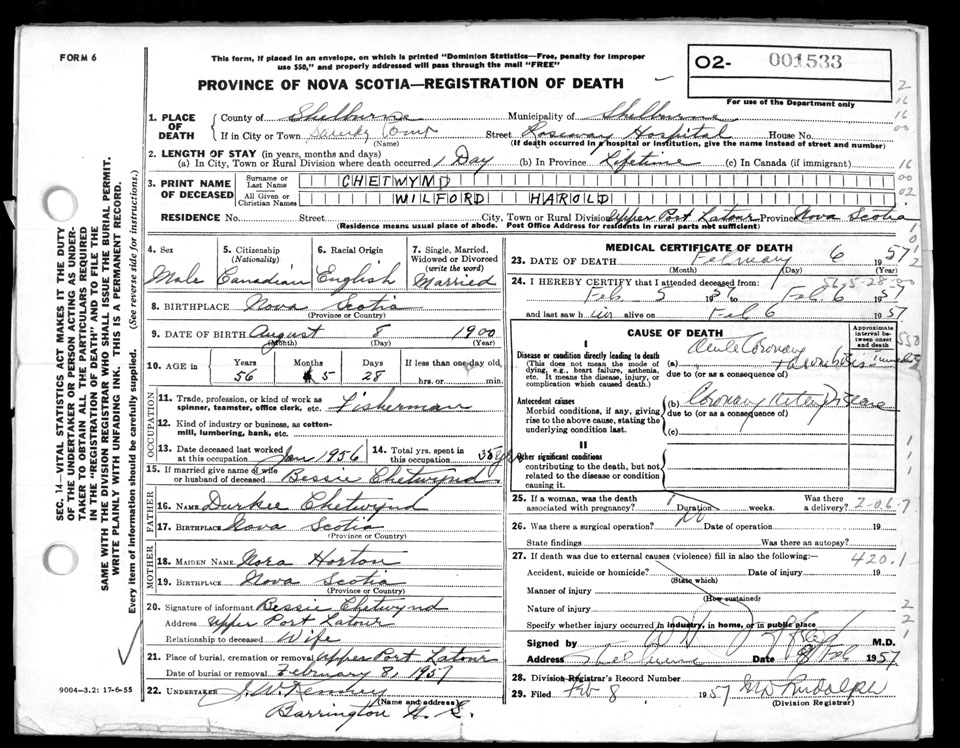 FORM 6
This form, if placed in an envelope, on which is printed "Dominion Statistics—Free, penalty for improper
use $50," and properly addressed will pass through the mail "FREE"
PROVINCE OF NOVA SCOTIA—REGISTRATION OF DEATH
02- 001533
For use of the Department only
2
16
16
00
1. PLACE OF DEATH
County of Shelburne Municipality of Shelburne
If in City or Town Street Roseway Hospital House No.
(Name) (If death occurred in a hospital or institution, give the name instead of street and number)
2. LENGTH OF STAY (in years, months and days)
(a) In City, Town or Rural Division where death occurred 1 Day (b) In Province Lifetime (c) In Canada (if immigrant)
16
3. PRINT NAME OF DECEASED
Surname or Last Name CHETWYND
All Given or Christian Names WILFORD HAROLD
00
02
RESIDENCE No. Street City, Town or Rural Division Upper Port Latour Province Nova Scotia
(Residence means usual place of abode. Post Office Address for residents in rural parts not sufficient)
4. Sex 5. Citizenship (Nationality) 6. Racial Origin 7. Single, Married, Widowed or Divorced (write the word)
Male Canadian English Married
8. BIRTHPLACE Nova Scotia
(Province or Country)
9. DATE OF BIRTH August 8 1900
(Month) (Day) (Year)
10. AGE in Years Months Days If less than one day old,
56 5 28 hrs. or min.
OCCUPATION
11. Trade, profession, or kind of work as spinner, teamster, office clerk, etc. Fisherman
12. Kind of industry or business, as cotton-mill, lumbering, bank, etc.
13. Date deceased last worked at this occupation Jan 1956 14. Total yrs. spent in this occupation 35 yrs
15. If married give name of wife or husband of deceased Bessie Chetwynd
FATHER
16. NAME Durkee Chetwynd
17. BIRTHPLACE Nova Scotia
(Province or Country)
MOTHER
18. MAIDEN NAME Nora Horton
19. BIRTHPLACE Nova Scotia
(Province or Country)
20. Signature of informant Bessie Chetwynd
Address Upper Port Latour
Relationship to deceased Wife
21. Place of burial, cremation or removal Upper Port Latour
Date of burial or removal February 8, 1957
22. UNDERTAKER
(Name and address)
Barrington N. S.
MEDICAL CERTIFICATE OF DEATH
23. DATE OF DEATH February 6 1957
(Month) (Day) (Year)
24. I HEREBY CERTIFY that I attended deceased from:
56-5-28-00
Feb 5 1957 to Feb 6 1957
and last saw him alive on Feb 6 1957
CAUSE OF DEATH
Approximate interval between onset and death
550
I
Disease or condition directly leading to death
(This does not mean the mode of dying, e.g., heart failure, asthenia, etc. It means the disease, injury, or complication which caused death.)
(a) Acute Coronary Thrombosis
due to (or as a consequence of)
Antecedent causes
Morbid conditions, if any, giving rise to the above cause, stating the underlying condition last.
(b) Coronary Artery Disease
due to (or as a consequence of)
(c)
II
Other significant conditions
contributing to the death, but not related to the disease or condition causing it.
25. If a woman, was the death associated with pregnancy? Duration weeks. Was there a delivery?
2-06-7
26. Was there a surgical operation? No Date of operation 19
State findings Was there an autopsy?
27. If death was due to external causes (violence) fill in also the following:—
420.1
Accident, suicide or homicide? Date of injury 19
(State which)
Manner of injury
(How sustained)
Nature of injury
Specify whether injury occurred in industry, in home, or in public place
Signed by M.D.
Address Shelburne Date 8 Feb 1957
28. Division Registrar's Record Number
29. Filed Feb 8 1957 Rudolph
(Division Registrar)
SEC. 14—VITAL STATISTICS ACT MAKES IT THE DUTY
OF THE UNDERTAKER OR PERSON ACTING AS UNDER-
TAKER TO OBTAIN ALL THE PARTICULARS REQUIRED
IN THE "REGISTRATION OF DEATH" AND TO FILE THE
SAME WITH THE DIVISION REGISTRAR WHO SHALL ISSUE THE BURIAL PERMIT.
WRITE PLAINLY WITH UNFADING INK. THIS IS A PERMANENT RECORD.
Every item of information should be carefully supplied. (See reverse side for instructions.)
9004-3.2: 17-6-55